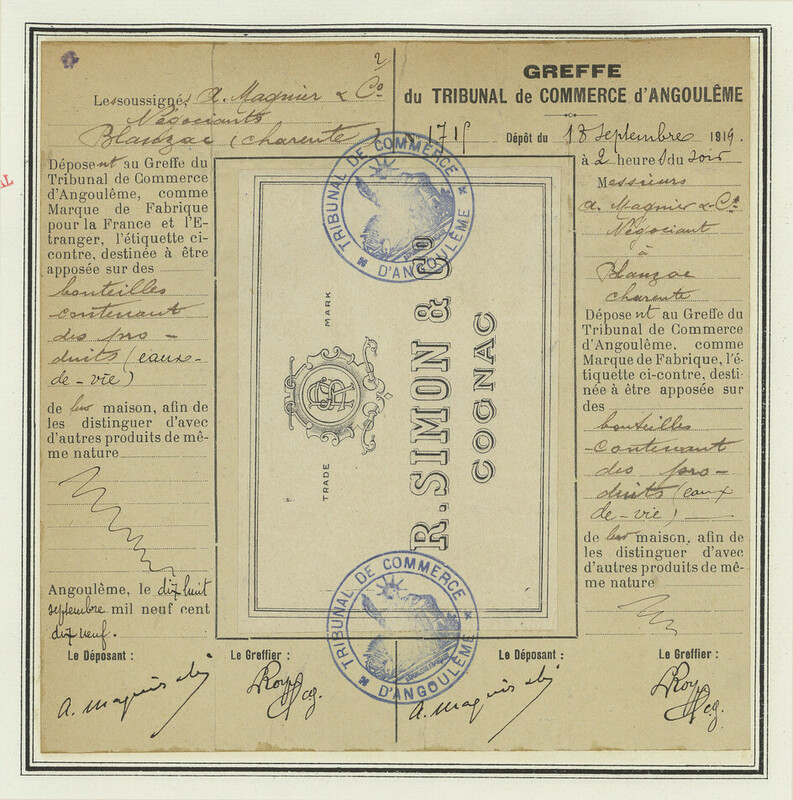 2
Les soussignés A. Magnier & Co
Négociants
Blanzac (charente)
Déposent au Greffe du
Tribunal de Commerce
d'Angoulême, comme
Marque de Fabrique
pour la France et l'E-
tranger, l'étiquette ci-
contre, destinée à être
apposée sur des
bouteilles
contenant
des pro-
duits (eaux-
de-vie)
de leur maison, afin de
les distinguer d'avec
d'autres produits de mê-
me nature
Angoulême, le dix huit
septembre mil neuf cent
dix neuf.
Le Déposant :
Le Greffier :
TRIBUNAL DE COMMERCE
D'ANGOULÊME
TRADE MARK
R. SIMON & Co
COGNAC
TRIBUNAL DE COMMERCE
D'ANGOULÊME
GREFFE
du TRIBUNAL de COMMERCE d'ANGOULÊME
1715 Dépôt du 18 Septembre 1919.
à 2 heures du soir
Messieurs
A. Magnier & Co
Négociant
à
Blanzac
charente
Déposent au Greffe du
Tribunal de Commerce
d'Angoulême, comme
Marque de Fabrique, l'é-
tiquette ci-contre, desti-
née à être apposée sur
des
bouteilles
contenant
des pro-
duits (eaux
de-vie)
de leur maison, afin de
les distinguer d'avec
d'autres produits de mê-
me nature
Le Déposant :
Le Greffier :